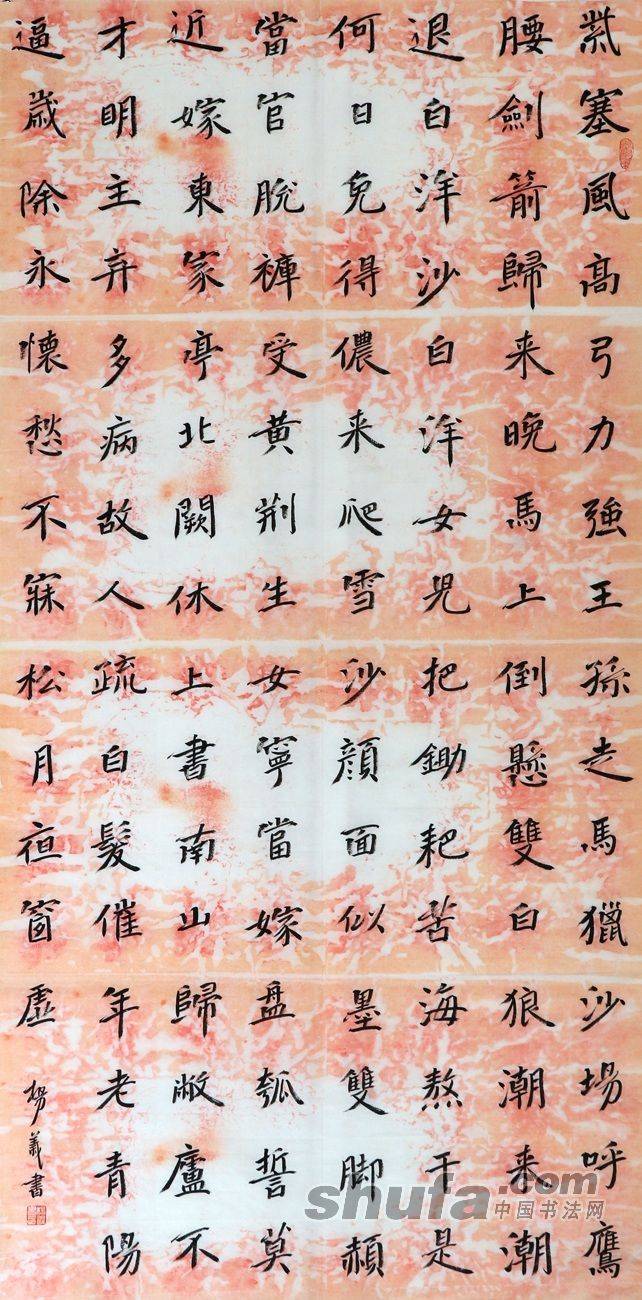 紫塞風高弓力強王孫走馬獵沙場呼鷹
腰劍箭歸來晚馬上倒懸雙白狼潮來潮
退白洋沙白洋女兒把鋤耙苦海熬干是
何日免得儂来爬雪沙顏面似墨雙脚赬
當官脫褲受黃荊生女寧當嫁盘瓠誓莫
近嫁東家亭北闕休上書南山歸敝廬不
才明主弃多病故人疏白髮催年老青陽
逼歲除永懷愁不寐松月夜窗虛
義書
shufa.com
中国书法网